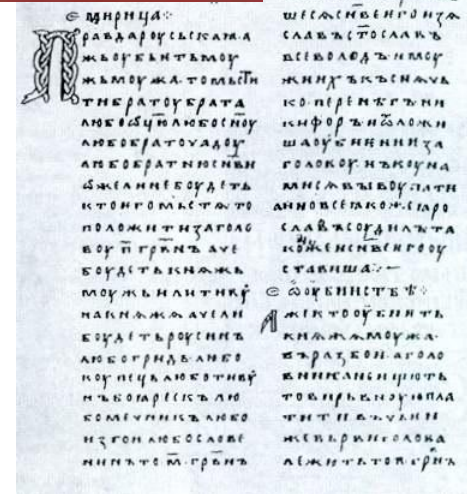 щирица⁘
Правда роусьскаꙗ. а
жь оубьѥть моу
жь моужа. то мьсти
ти братоу брата
любо ѿцю любо сн҃оу
любо братоучадоу
любо братню сн҃ви
ѡже ли не боудеть
кто ѥго мьстѧ то
положити за голо
воу п҃ грв҃нъ аче
боудеть кнѧжь
моужь или тивꙋ
на кнѧжа аче ли
боудеть роусинъ
любо гридь. любо
коупець любо тивꙋ
нъ боꙗрескъ лю
бо мечникъ любо
изгои любо слове
нинъ то м҃. грв҃нъ
шесѧ сн҃ве ѥго изѧ
славъ ст҃ославъ
всеволодъ и моу
жи ихъ къснѧчь
ко. перенѣгъ ни
кифоръ и ѿложи
ша оубиениѥ за
голокоу нъ коуна
ми сѧ выкоупати
а ино все ꙗкоже ꙗро
славъ соудилъ та
коже и сн҃ве ѥго оу
ставиша⁘
ѡ оубииствѣ⁘
Аже кто оубиить
кнѧжа моужа.
въ разбои. а голо
вника не ищють
то вирьвноую пла
тити въ чьеи
же вьрви голова
лежить то п҃ грв҃нъ